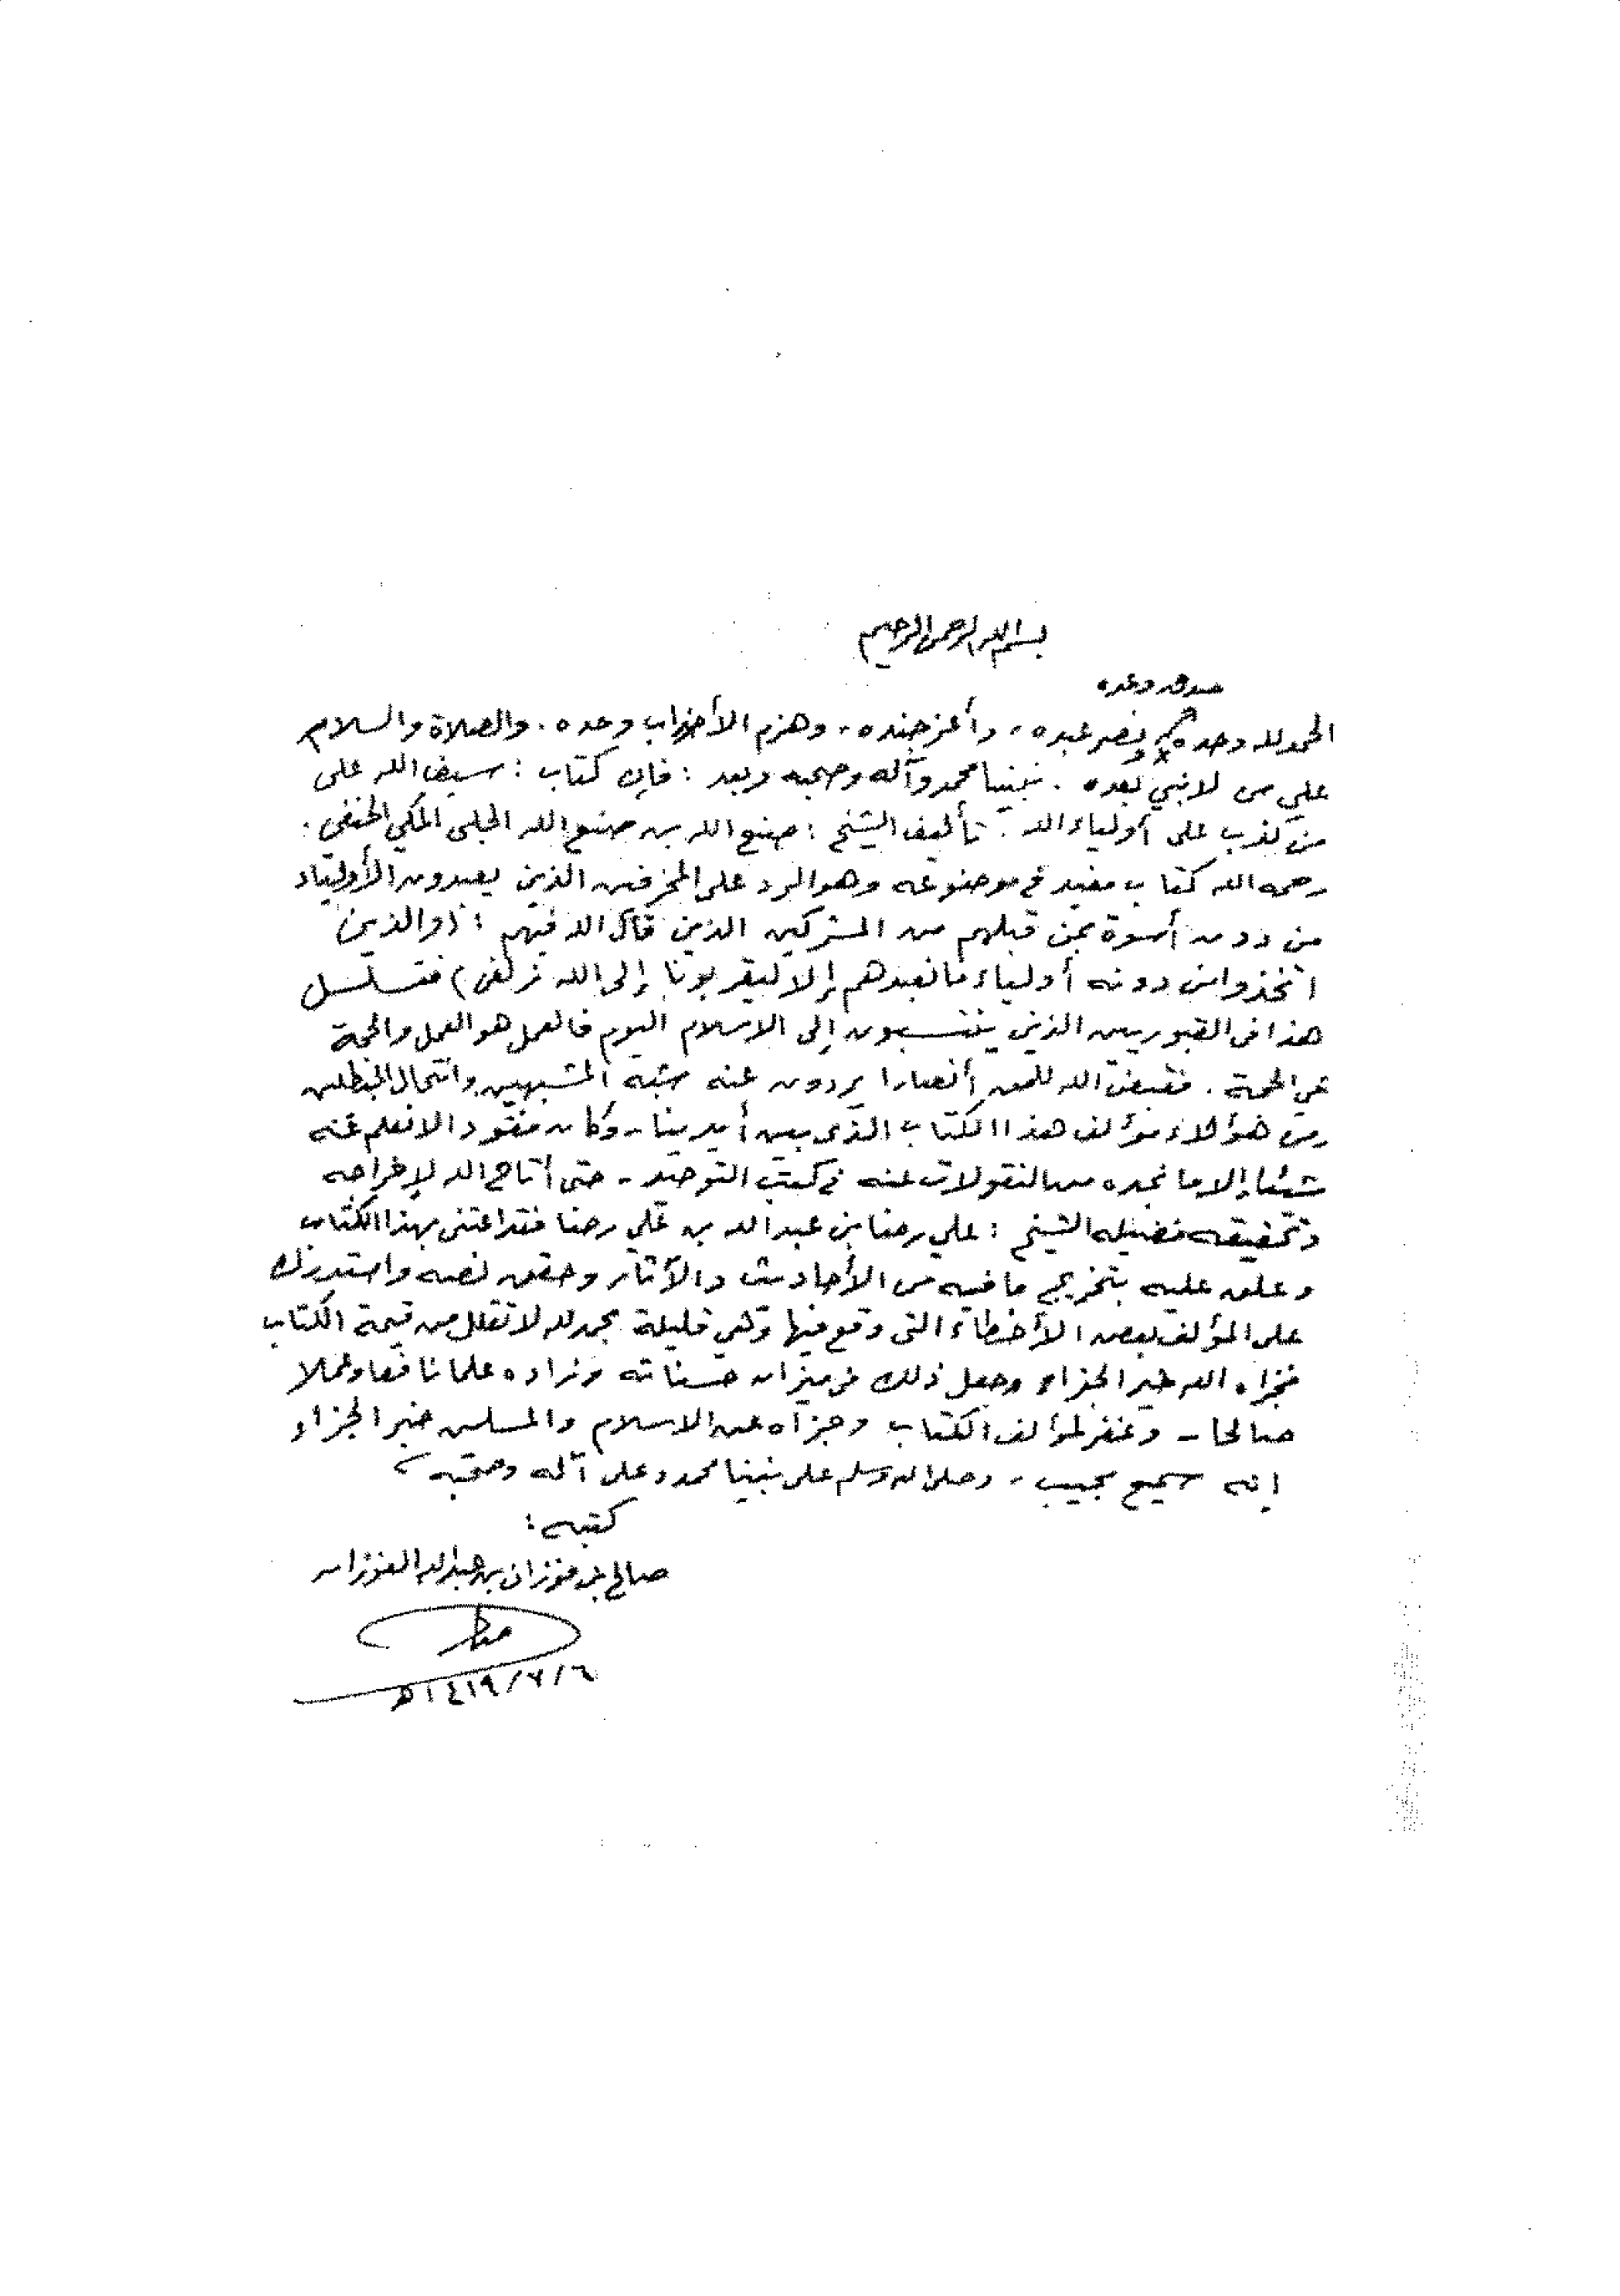 بسم الله الرحمن الرحيم
صدق وعده
الحمد لله وحده ونصر عبده، وأعز جنده، وهزم الأحزاب وحده. والصلاة والسلام
على من لا نبي بعده. نبينا محمد وآله وصحبه وبعد: فإن كتاب: سيف الله على
من كذب على أولياء الله. تأليف الشيخ: صنع الله بن صنع الله الحلبي المكي الحنفي.
رحمه الله كتاب مفيد في موضوعه وهو الرد على المخرفين الذين يعبدون الأولياء
من دون الله أسوة بمن قبلهم من المشركين الذين قال الله فيهم: (والذين
اتخذوا من دونه أولياء ما نعبدهم إلا ليقربونا إلى الله زلفى) فتسلسل
هذا في القبوريين الذين ينتسبون إلى الاسلام اليوم فالعمل هو العمل والحجة
هي الحجة. فقيض الله للحق أنصارا يردون عنه شبه المشبهين وانتحال المبطلين
ومن هؤلاء مؤلف هذا الكتاب الذي بين أيدينا - وكان مفقودا لا نعلم عنه
شيئا إلا ما نجده من النقولات عنه في كتب التوحيد - حتى أتاح الله لإخراجه
وتحقيقه فضيلة الشيخ: علي رضا بن عبد الله بن علي رضا فقد اعتنى بهذا الكتاب
وعلق عليه بتخريج ما فيه من الأحاديث والآثار وحقق نصه واستدرك
على المؤلف بعض الأخطاء التي وقع فيها وهي قليلة بحمد لله لا تقلل من قيمة الكتاب
فجزاه الله خير الجزاء وجعل ذلك في ميزان حسناته وزاده علما نافعا وعملا
صالحا - وغفر لمؤلف الكتاب وجزاه عن الاسلام والمسلمين خير الجزاء
إنه سميع مجيب، وصلى الله وسلم على نبينا محمد وعلى آله وصحبه
كتبه:
صالح بن فوزان بن عبد الله الفوزان
١٤١٩/٧/٦هـ